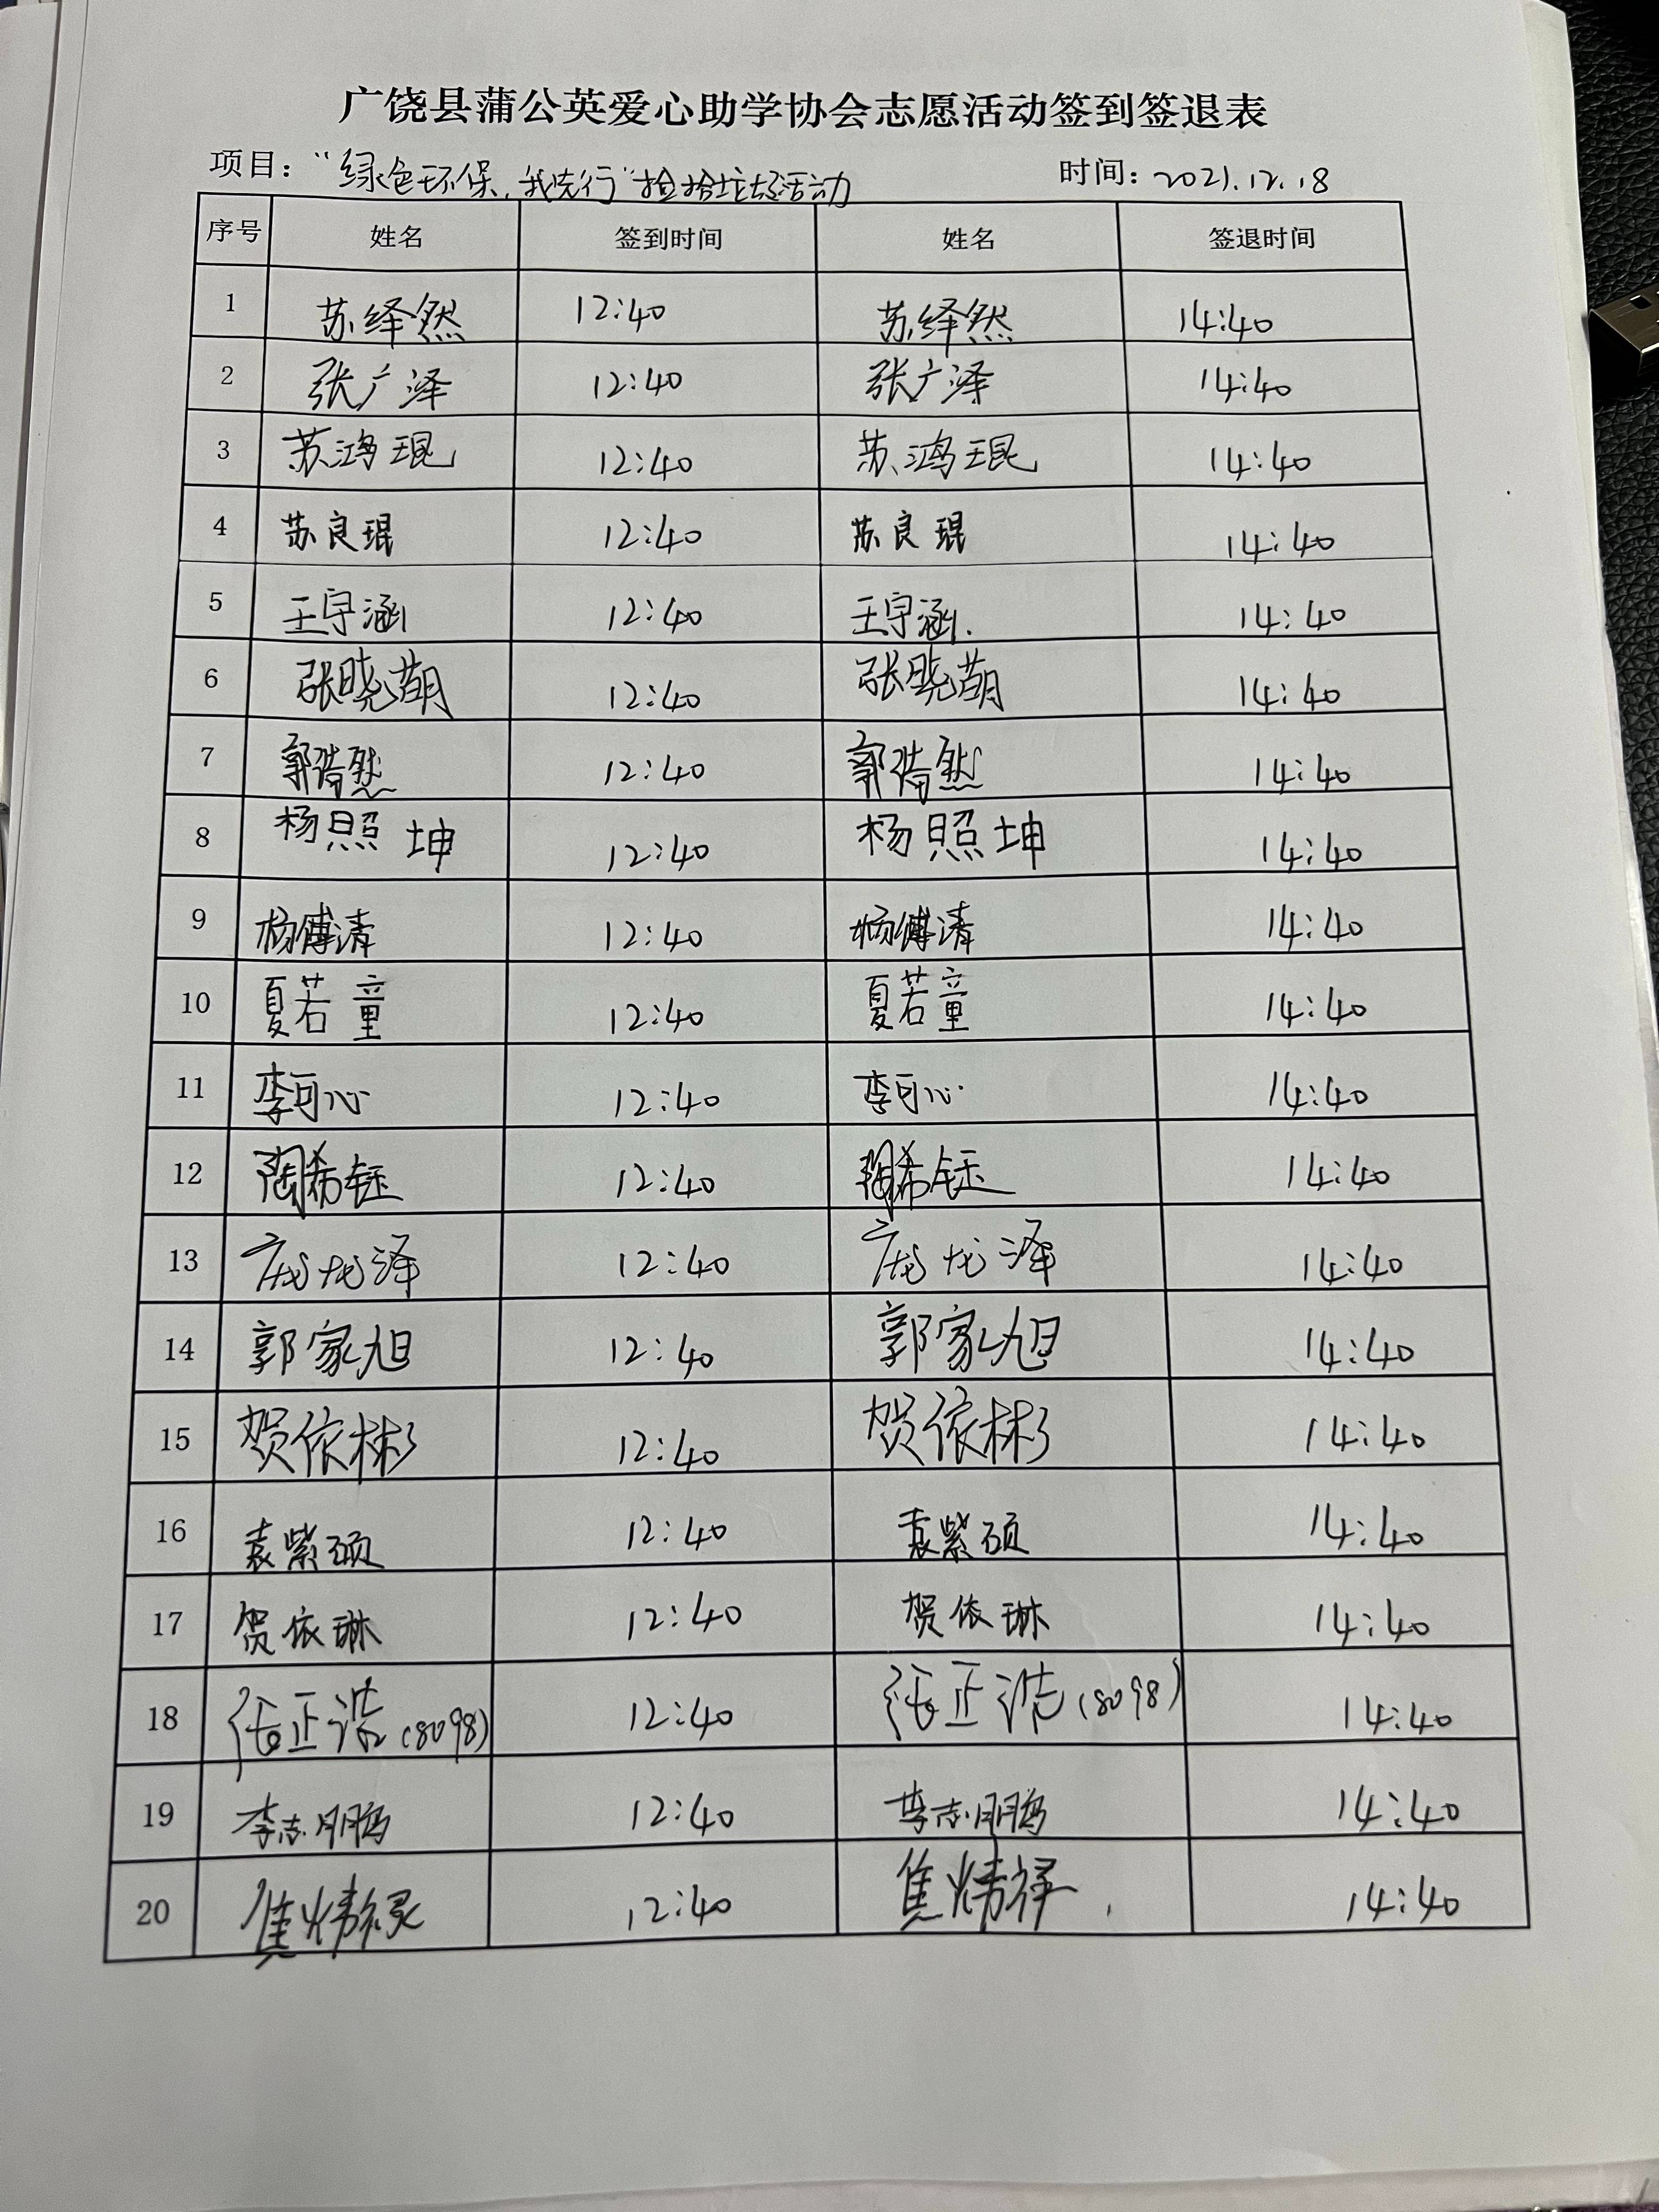 广饶县蒲公英爱心助学协会志愿活动签到签退表
项目："绿色环保,我先行"捡拾垃圾活动 时间：2021.12.18
序号 姓名 签到时间 姓名 签退时间
1 苏绎然 12:40 苏绎然 14:40
2 张广泽 12:40 张广泽 14:40
3 苏鸿琨 12:40 苏鸿琨 14:40
4 苏良琨 12:40 苏良琨 14:40
5 王宇涵 12:40 王宇涵. 14:40
6 张晓萌 12:40 张晓萌 14:40
7 郭浩然 12:40 郭浩然 14:40
8 杨照坤 12:40 杨照坤 14:40
9 杨傅清 12:40 杨傅清 14:40
10 夏若童 12:40 夏若童 14:40
11 李可心 12:40 李可心 14:40
12 陶希钰 12:40 陶希钰 14:40
13 庞龙泽 12:40 庞龙泽 14:40
14 郭家旭 12:40 郭家旭 14:40
15 贺依彬 12:40 贺依彬 14:40
16 袁紫硕 12:40 袁紫硕 14:40
17 贺依琳 12:40 贺依琳 14:40
18 张正浩(8098) 12:40 张正浩(8098) 14:40
19 李志鹏 12:40 李志鹏 14:40
20 12:40 14:40